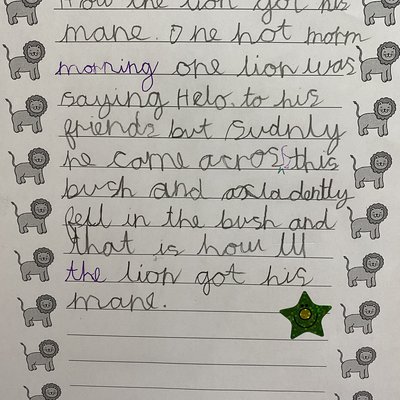 How the lion got his
mane. One hot morn
morning one lion was
saying Helo. to his
friends but sudnly
he came across this
bush and axladently
fell in the bush and
that is how lll
the lion got his
mane.